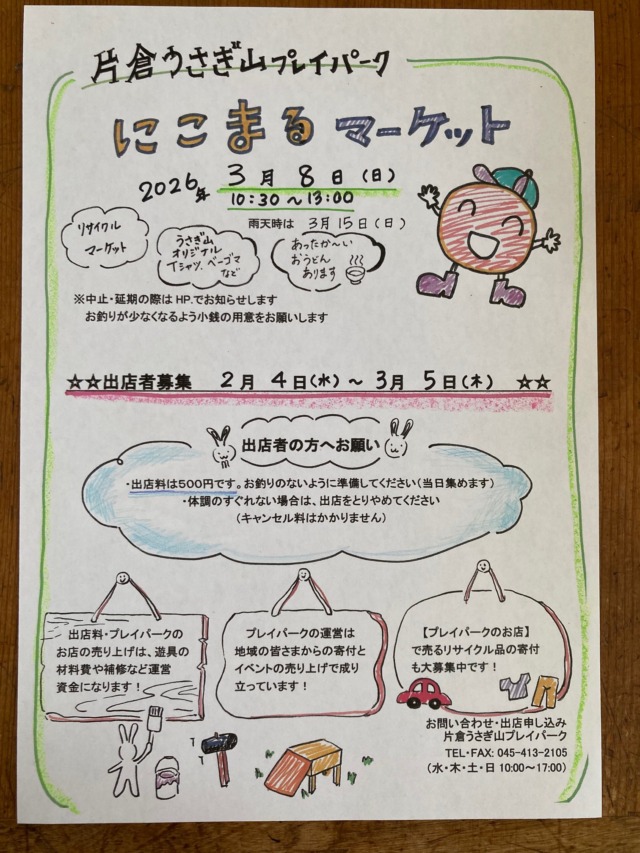 片倉うさぎ山プレイパーク
にこまるマーケット
2026年 3月 8日(日)
10:30～13:00
雨天時は 3月15日(日)
リサイクル
マーケット
うさぎ山
オリジナル
Tシャツ、ベーゴマ
など
あったか～い
おうどん
あります
※中止・延期の際はHP.でお知らせします
お釣りが少なくなるよう小銭の用意をお願いします
☆☆出店者募集 2月 4日(水) ～ 3月 5日(木) ☆☆
出店者の方へお願い
・出店料は500円です。お釣りのないように準備してください(当日集めます)
・体調のすぐれない場合は、出店をとりやめてください
(キャンセル料はかかりません)
出店料・プレイパークの
お店の売り上げは、遊具の
材料費や補修など運営
資金になります！
プレイパークの運営は
地域の皆さまからの寄付と
イベントの売り上げで成り
立っています！
【プレイパークのお店】
で売るリサイクル品の寄付
も大募集中です！
お問い合わせ・出店申し込み
片倉うさぎ山プレイパーク
TEL・FAX: 045-413-2105
(水・木・土・日 10:00～17:00)